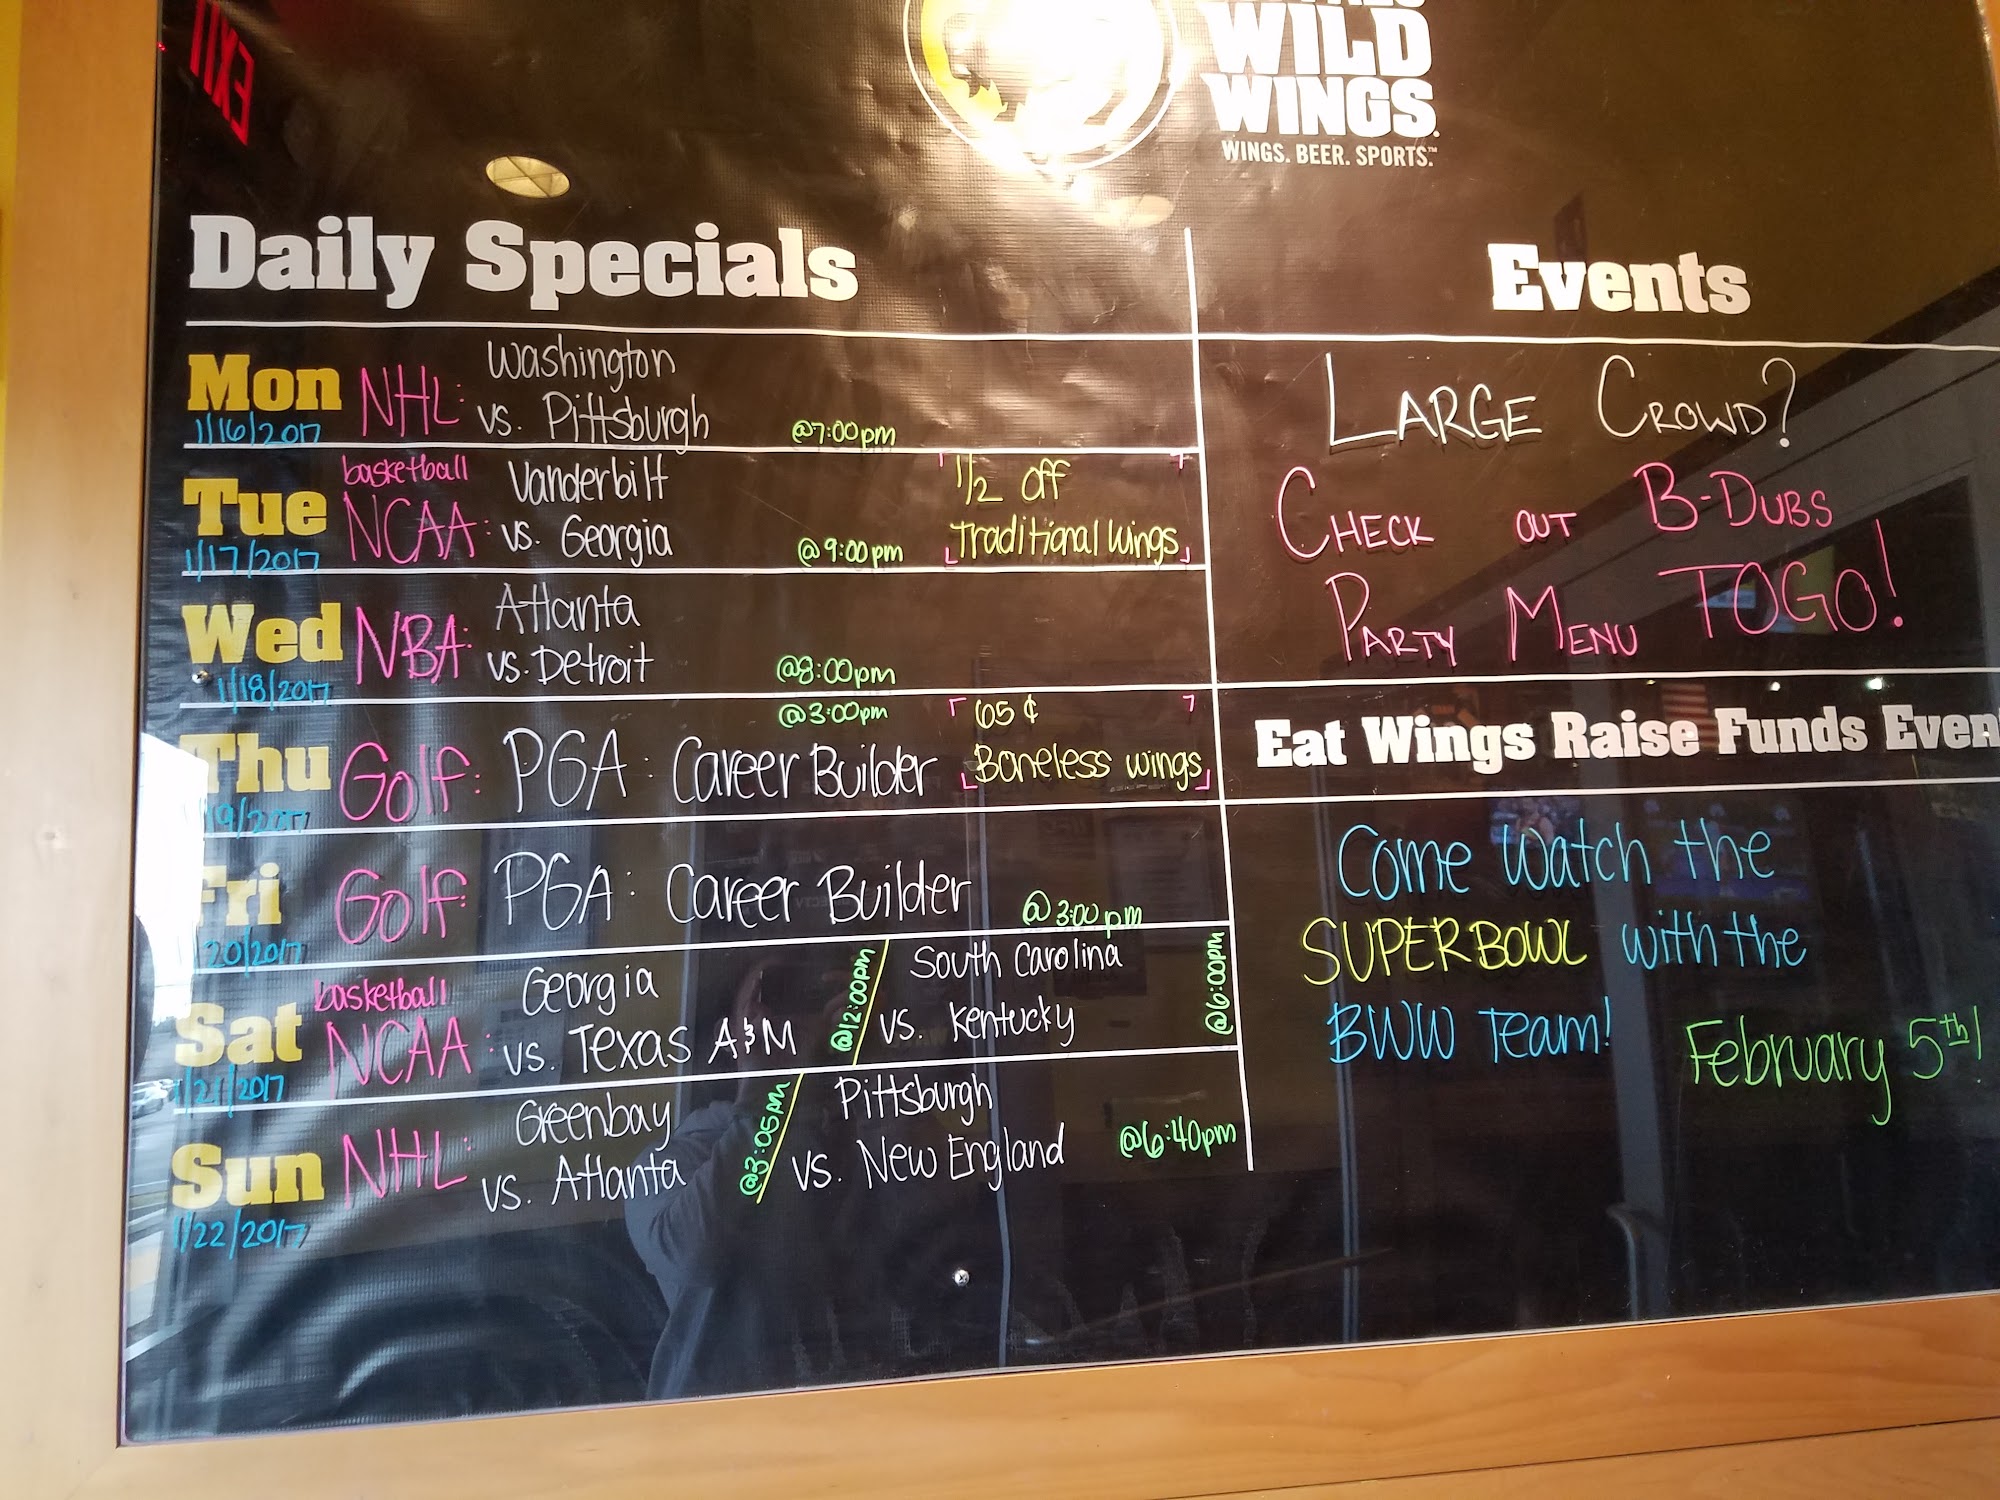 EXIT
WILD
WINGS
WINGS. BEER. SPORTS.™
Daily Specials
Mon
1/16/2017
NHL:
Washington
vs. Pittsburgh
@7:00pm
Tue
1/17/2017
basketball
NCAA:
Vanderbilt
vs. Georgia
@9:00pm
1/2 off
Traditional Wings
Wed
1/18/2017
NBA:
Atlanta
vs. Detroit
@8:00pm
Thu
19/2017
Golf:
PGA: Career Builder
@3:00pm
65¢
Boneless wings
Fri
20/2017
Golf:
PGA: Career Builder
@3:00pm
Sat
1/21/2017
basketball
NCAA:
Georgia
vs. Texas A&M
@12:00pm
South Carolina
vs. Kentucky
@6:00pm
Sun
1/22/2017
NHL:
Greenbay
vs. Atlanta
@3:05pm
Pittsburgh
vs. New England
@6:40pm
Events
LARGE CROWD?
CHECK OUT B-DUBS
PARTY MENU TOGO!
Eat Wings Raise Funds Even
Come watch the
SUPERBOWL with the
BWW Team!
February 5th!